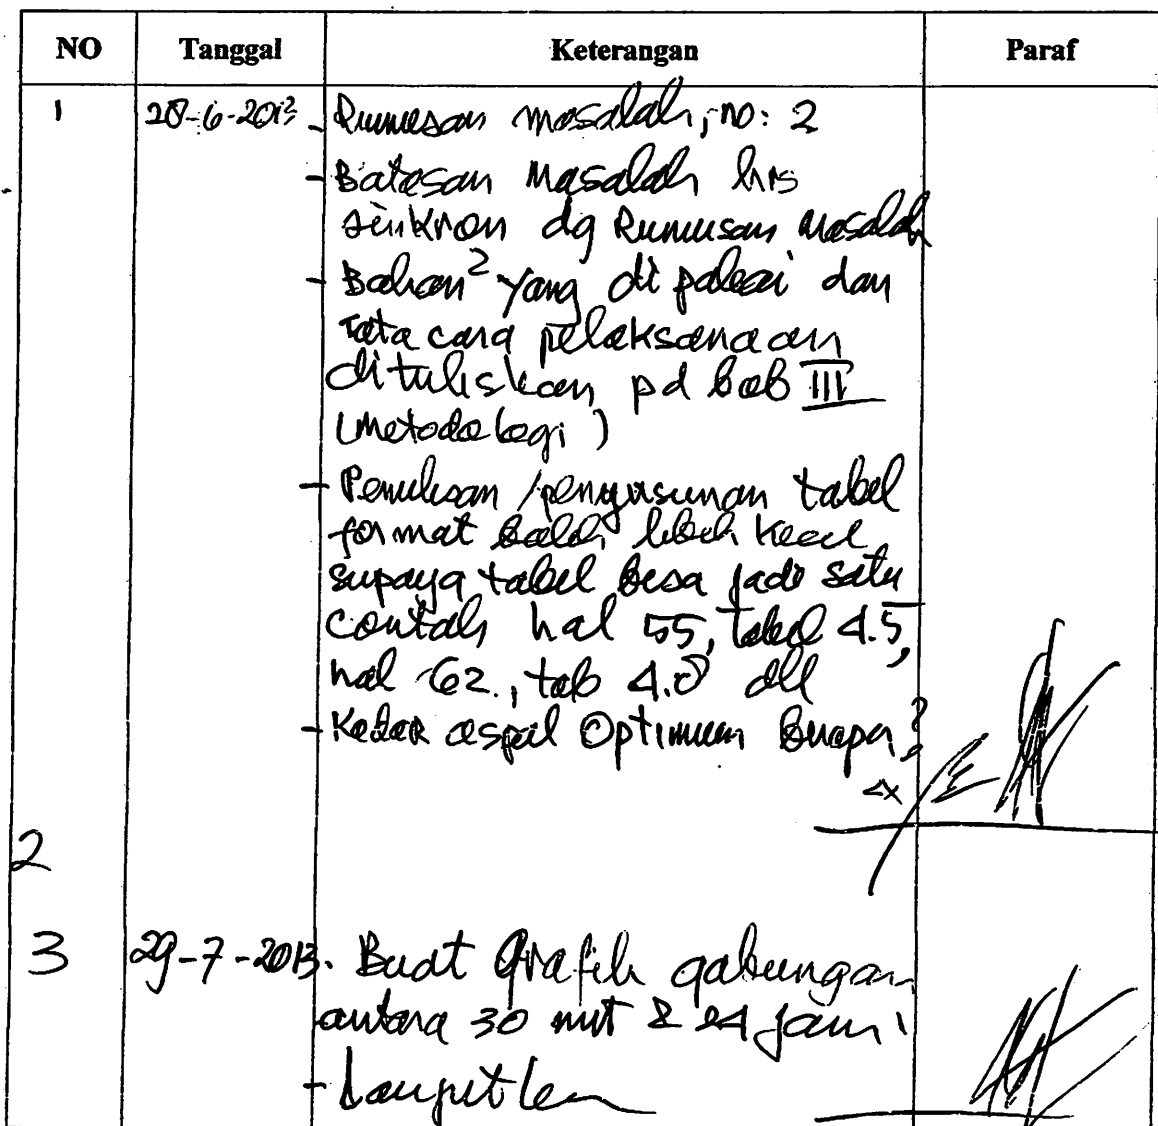 NO Tanggal Keterangan Paraf
1 28-6-2013 - Rumusan masalah, no: 2
- Batasan Masalah hrs
sinkron dg Rumusan Masalah
- Bahan² yang di pakai dan
Tata cara pelaksanaan
dituliskan pd bab III
(Metodologi)
- Penulisan / penyusunan tabel
format lebih kecil
supaya tabel bisa jadi satu
contoh hal 55, tabel 4.5,
hal 62., tab 4.8 dll
- Kadar aspal Optimum Berapa?
2
3 29-7-2013. Buat Grafik gabungan
antara 30 mnt & 24 jam
- Lanjutkan